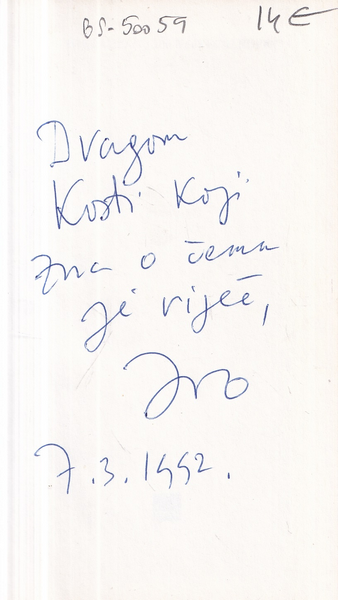 BS-50059
14 €
Dragom
Kosti koji
zna o čemu
je riječ,
Ivo
7.3.1992.